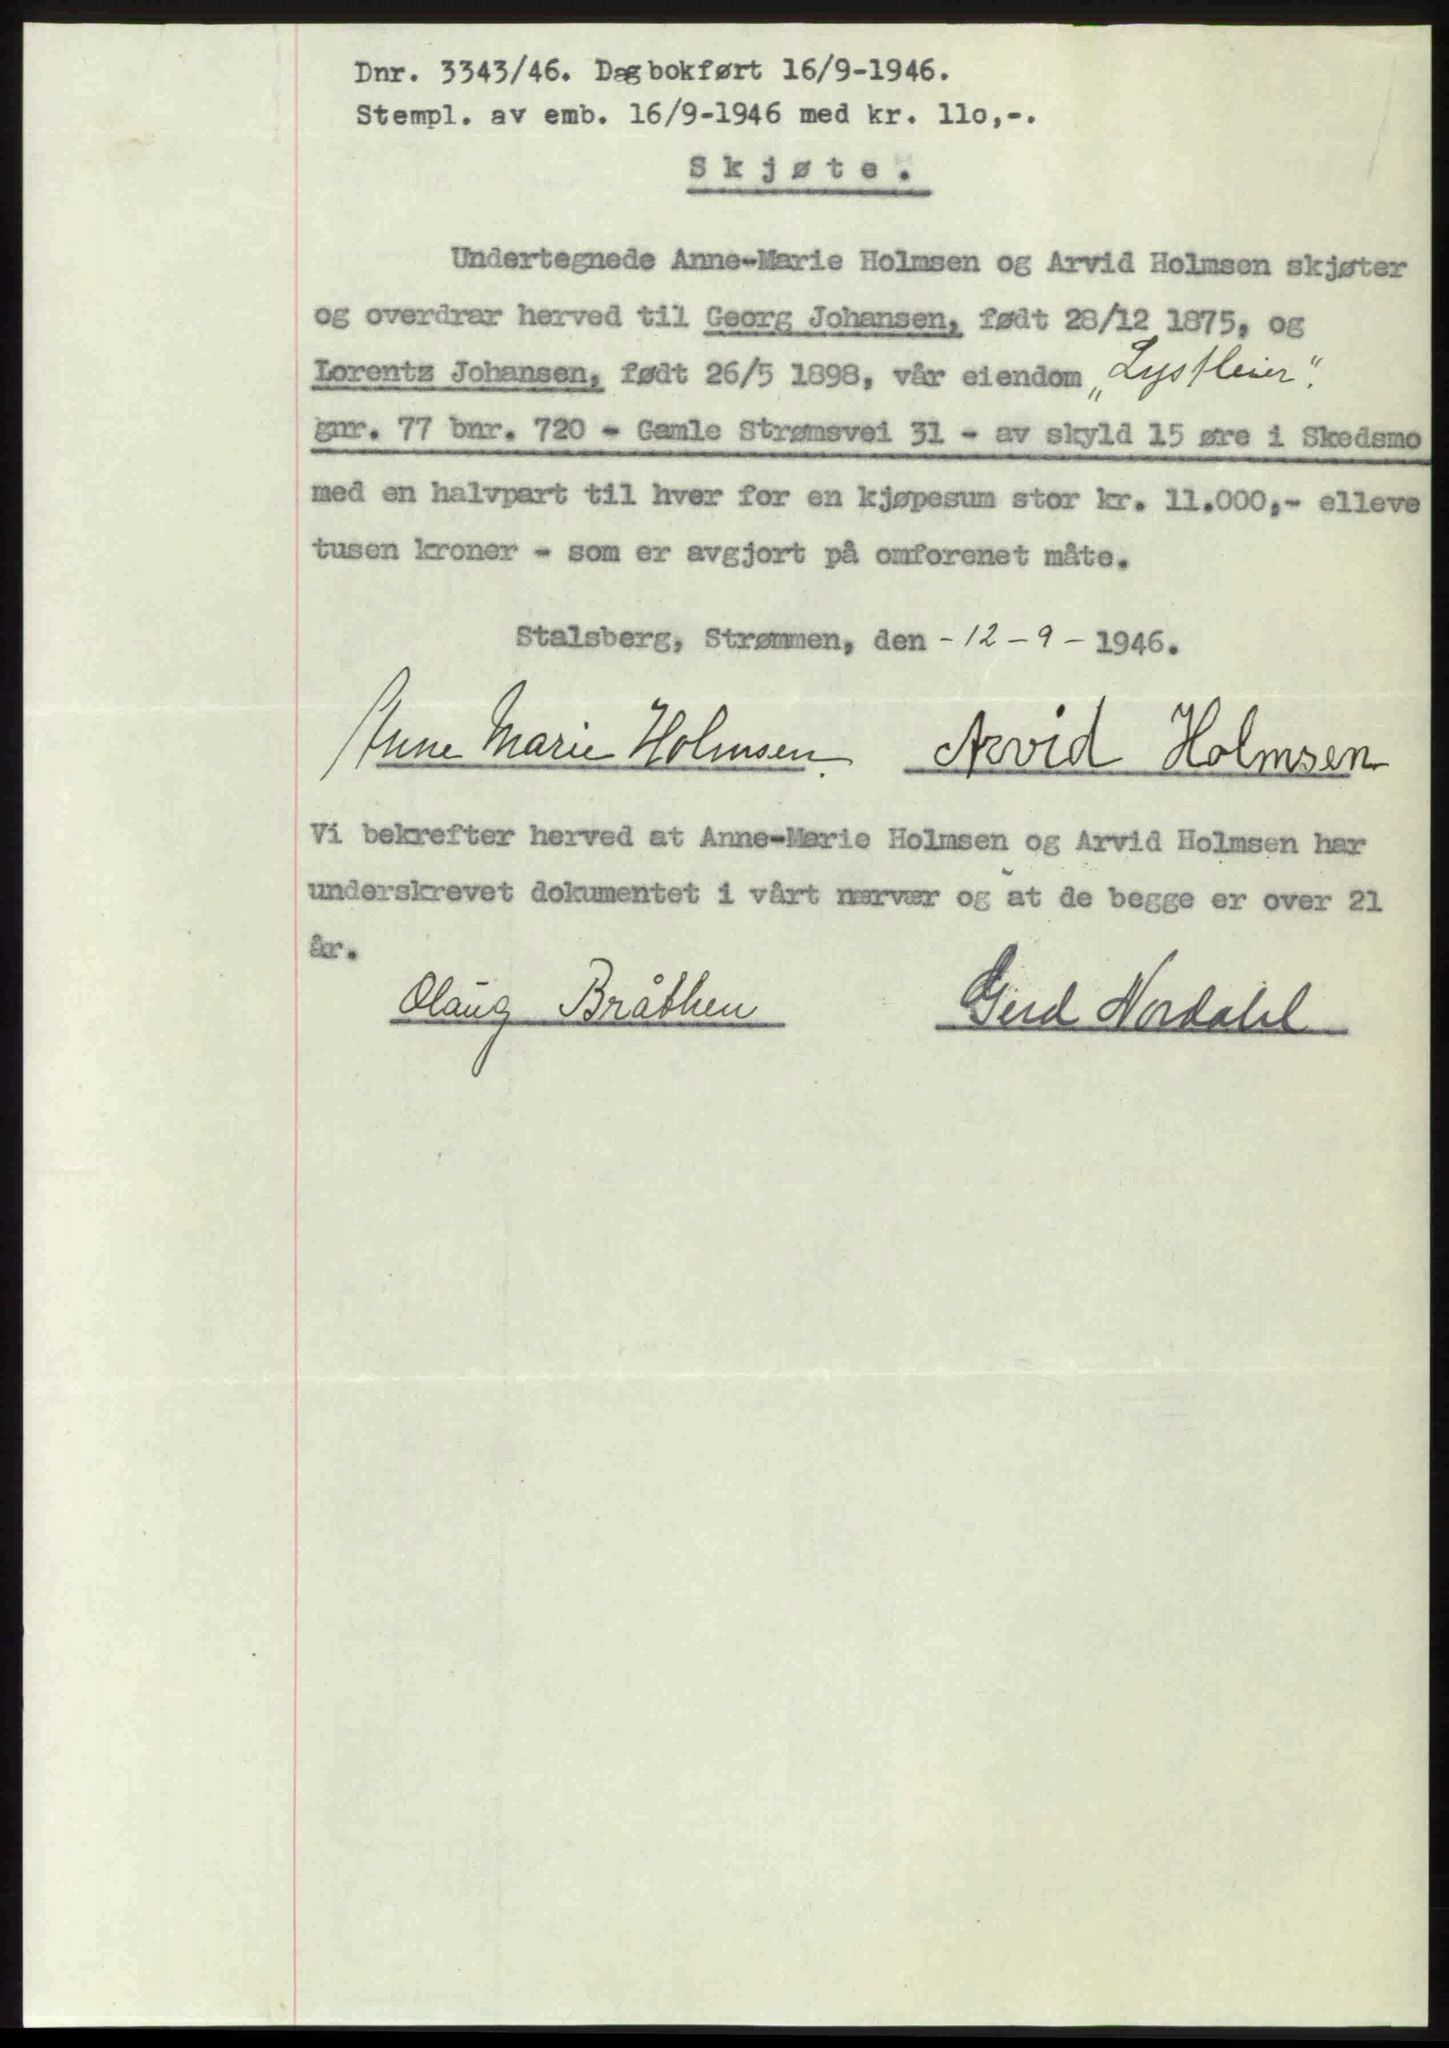 Dnr. 3343/46. Dagbokført 16/9-1946.
Stempl. av emb. 16/9-1946 med kr. 110,-.
Skjøte.
Undertegnede Anne-Marie Holmsen og Arvid Holmsen skjøter
og overdrar herved til Georg Johansen, født 28/12 1875, og
Lorentz Johansen, født 26/5 1898, vår eiendom
gnr. 77 bnr. 720 - Gamle Strømsvei 31 - av skyld 15 øre i Skedsmo
med en halvpart til hver for en kjøpesum stor kr. 11.000,- elleve
tusen kroner - som er avgjort på omforenet måte.
Stalsberg, Strømmen, den -12-9- 1946.
Anne Marie Holmsen. Arvid Holmsen
Vi bekrefter herved at Anne-Marie Holmsen og Arvid Holmsen har
underskrevet dokumentet i vårt nærvær og at de begge er over 21
år.
Olaug Bråthen Gerd Nordahl